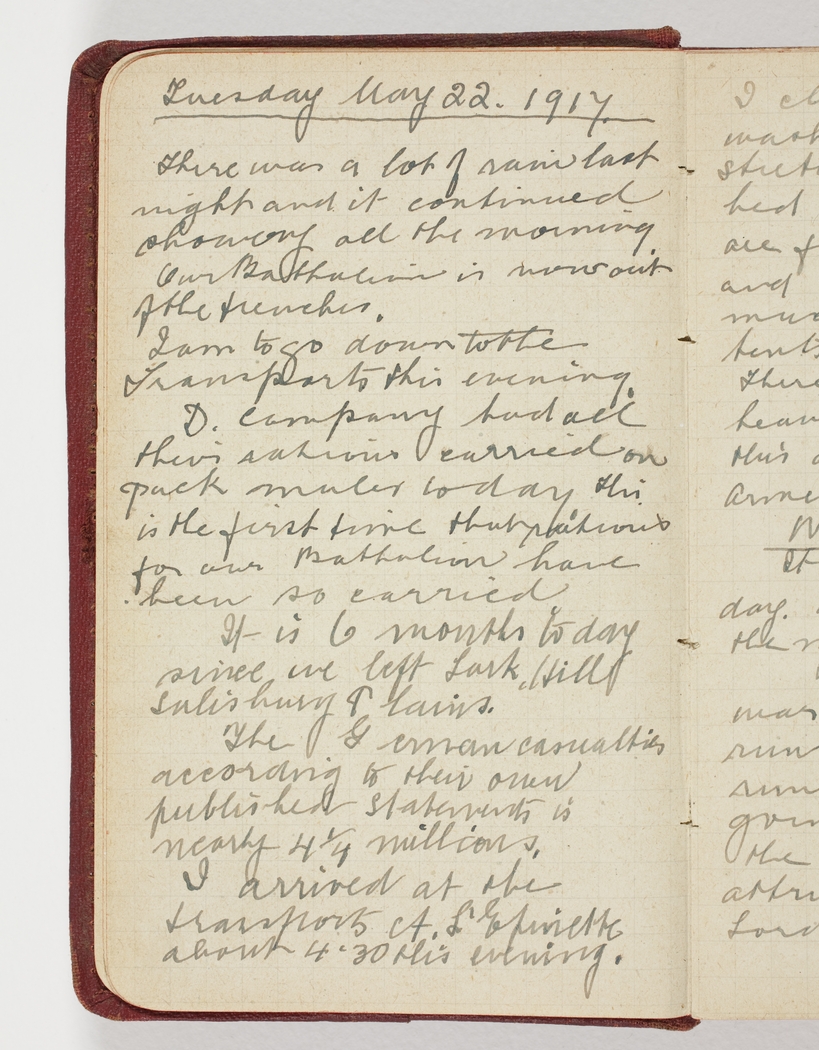 Tuesday May 22. 1917.
There was a lot of rain last
night and it continued
showery all the morning.
Our Batthalion is now out
of the trenches.
I am to go down to the
Transports this evening.
D. Company had all
their rations carried on
pack mules today this
is the first time that rations
for our Batthalion have
been so carried
It is 6 months to day
since we left Lark Hill
Salisbury Plains.
The German casualties
according to their own
published statements is
nearly 4 1/4 millions.
I arrived at the
transports at L'Epinette
about 4.30 this evening.
I cl
wash
bed
are f
and
mud
tents
There
heav
this a
Arme
St
day.
the n
was
run
runn
goin
the
attr
Lord